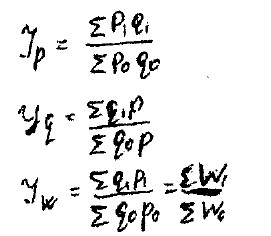 Jp = Σp₁q₁ / Σp₀q₀
Yq = Σq₁p / Σq₀p
Jw = Σq₁p₁ / Σq₀p₀ = ΣW₁ / ΣW₀